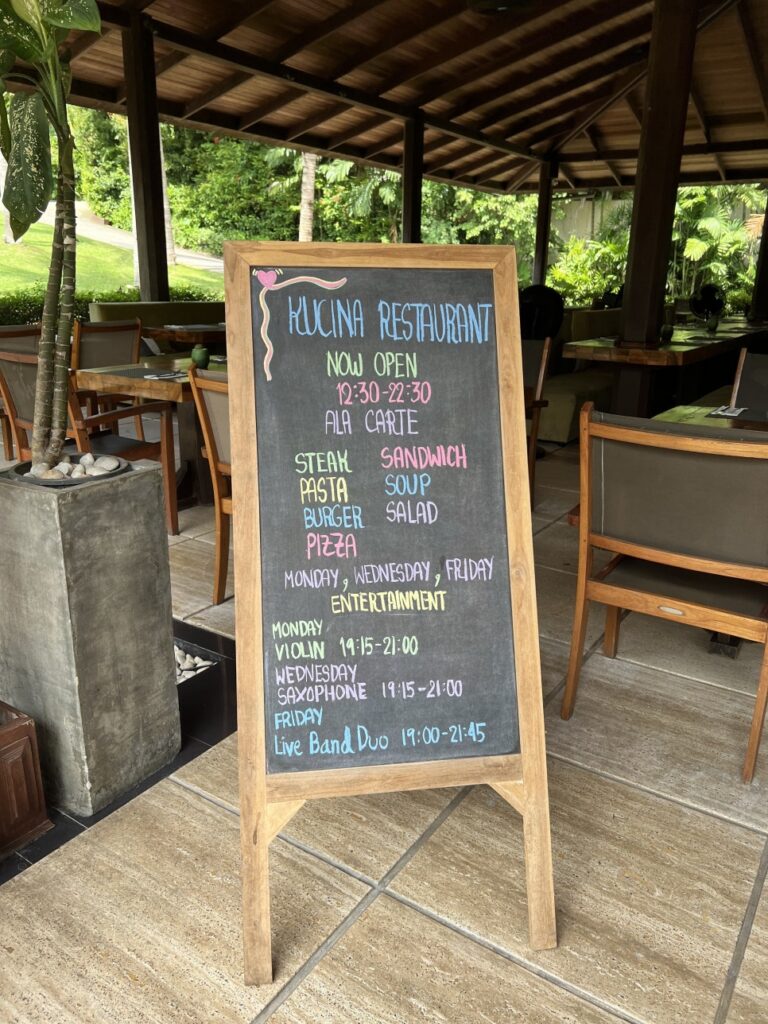 KUCINA RESTAURANT
NOW OPEN
12:30-22:30
ALA CARTE
STEAK SANDWICH
PASTA SOUP
BURGER SALAD
PIZZA
MONDAY, WEDNESDAY, FRIDAY
ENTERTAINMENT
MONDAY
VIOLIN 19:15-21:00
WEDNESDAY
SAXOPHONE 19:15-21:00
FRIDAY
Live Band Duo 19:00-21:45